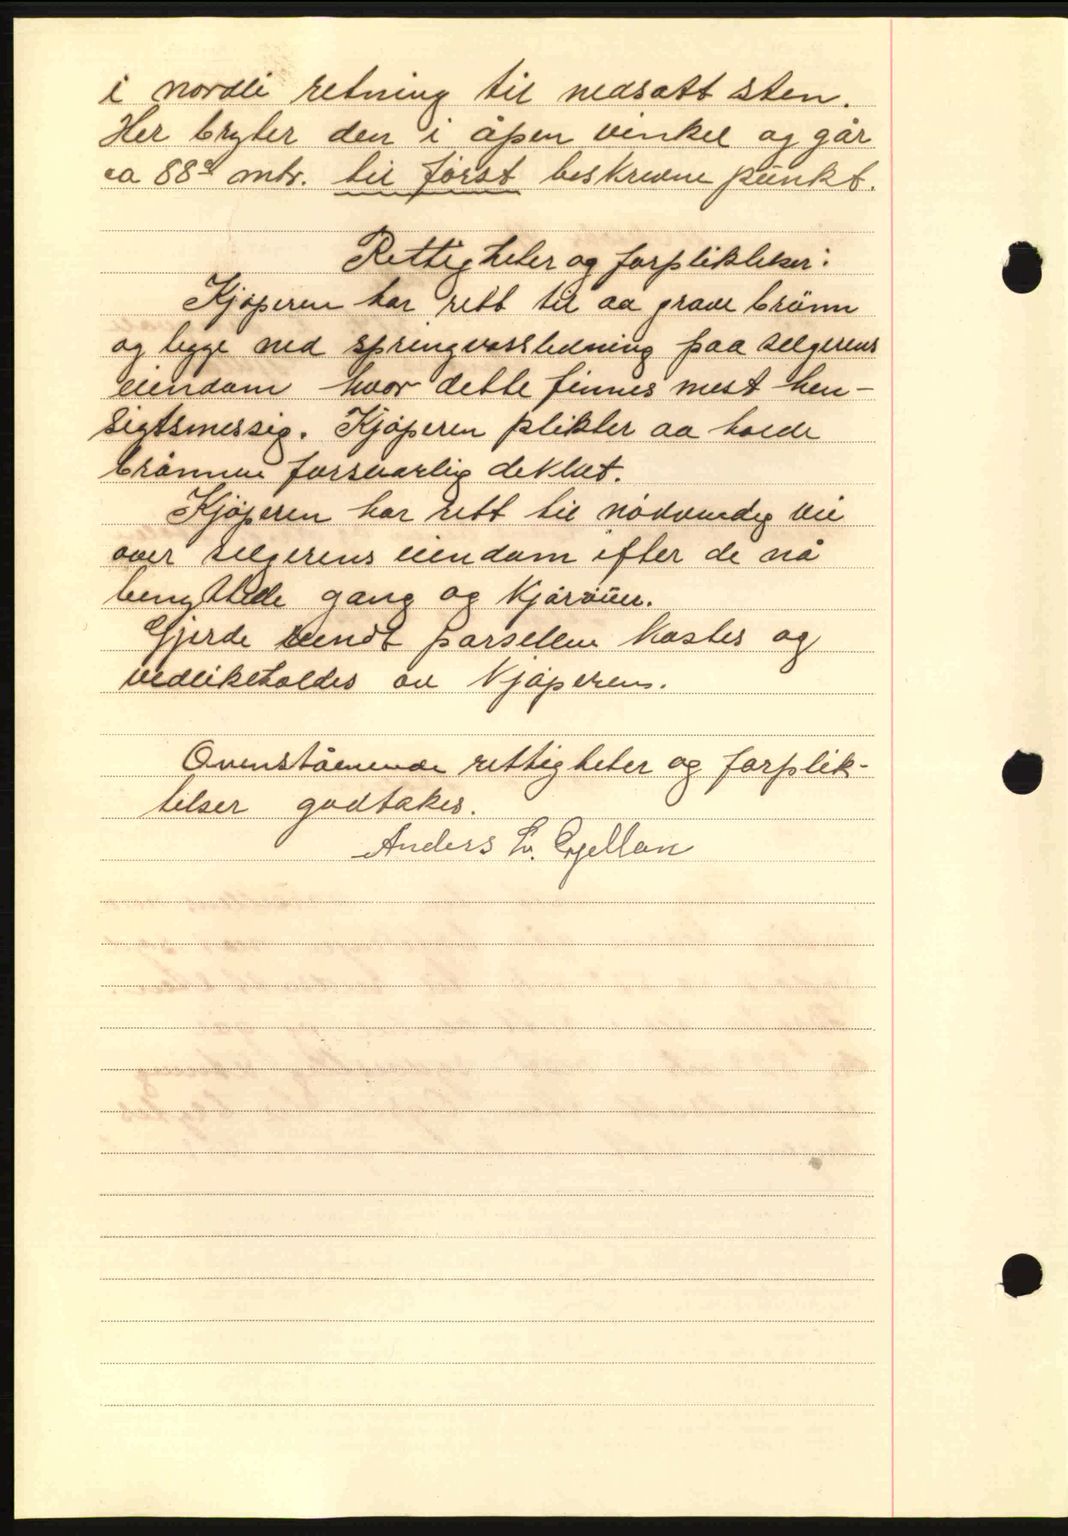 i nordli retning til nedsatt sten.
Her bryter den i åpen vinkel og går
ca 88⁵ mtr. til først beskrevne punkt.
Rettigheter og forpliktelser:
Kjøperen har rett til aa grave brønn
og legge ned springvassledning paa selgerens
eiendom hvor dette finnes mest hen-
sigtsmessig. Kjøperen plikter aa holde
brønnen forsvarlig dekket.
Kjøperen har rett til nødvendig vei
over selgerens eiendom efter de nå
benyttede gang og kjørveier.
Gjerde rundt parsellen kostes og
vedlikeholdes av kjøperen.
Ovenståenende rettigheter og forplik-
telser godtakes.
Anders Ev.